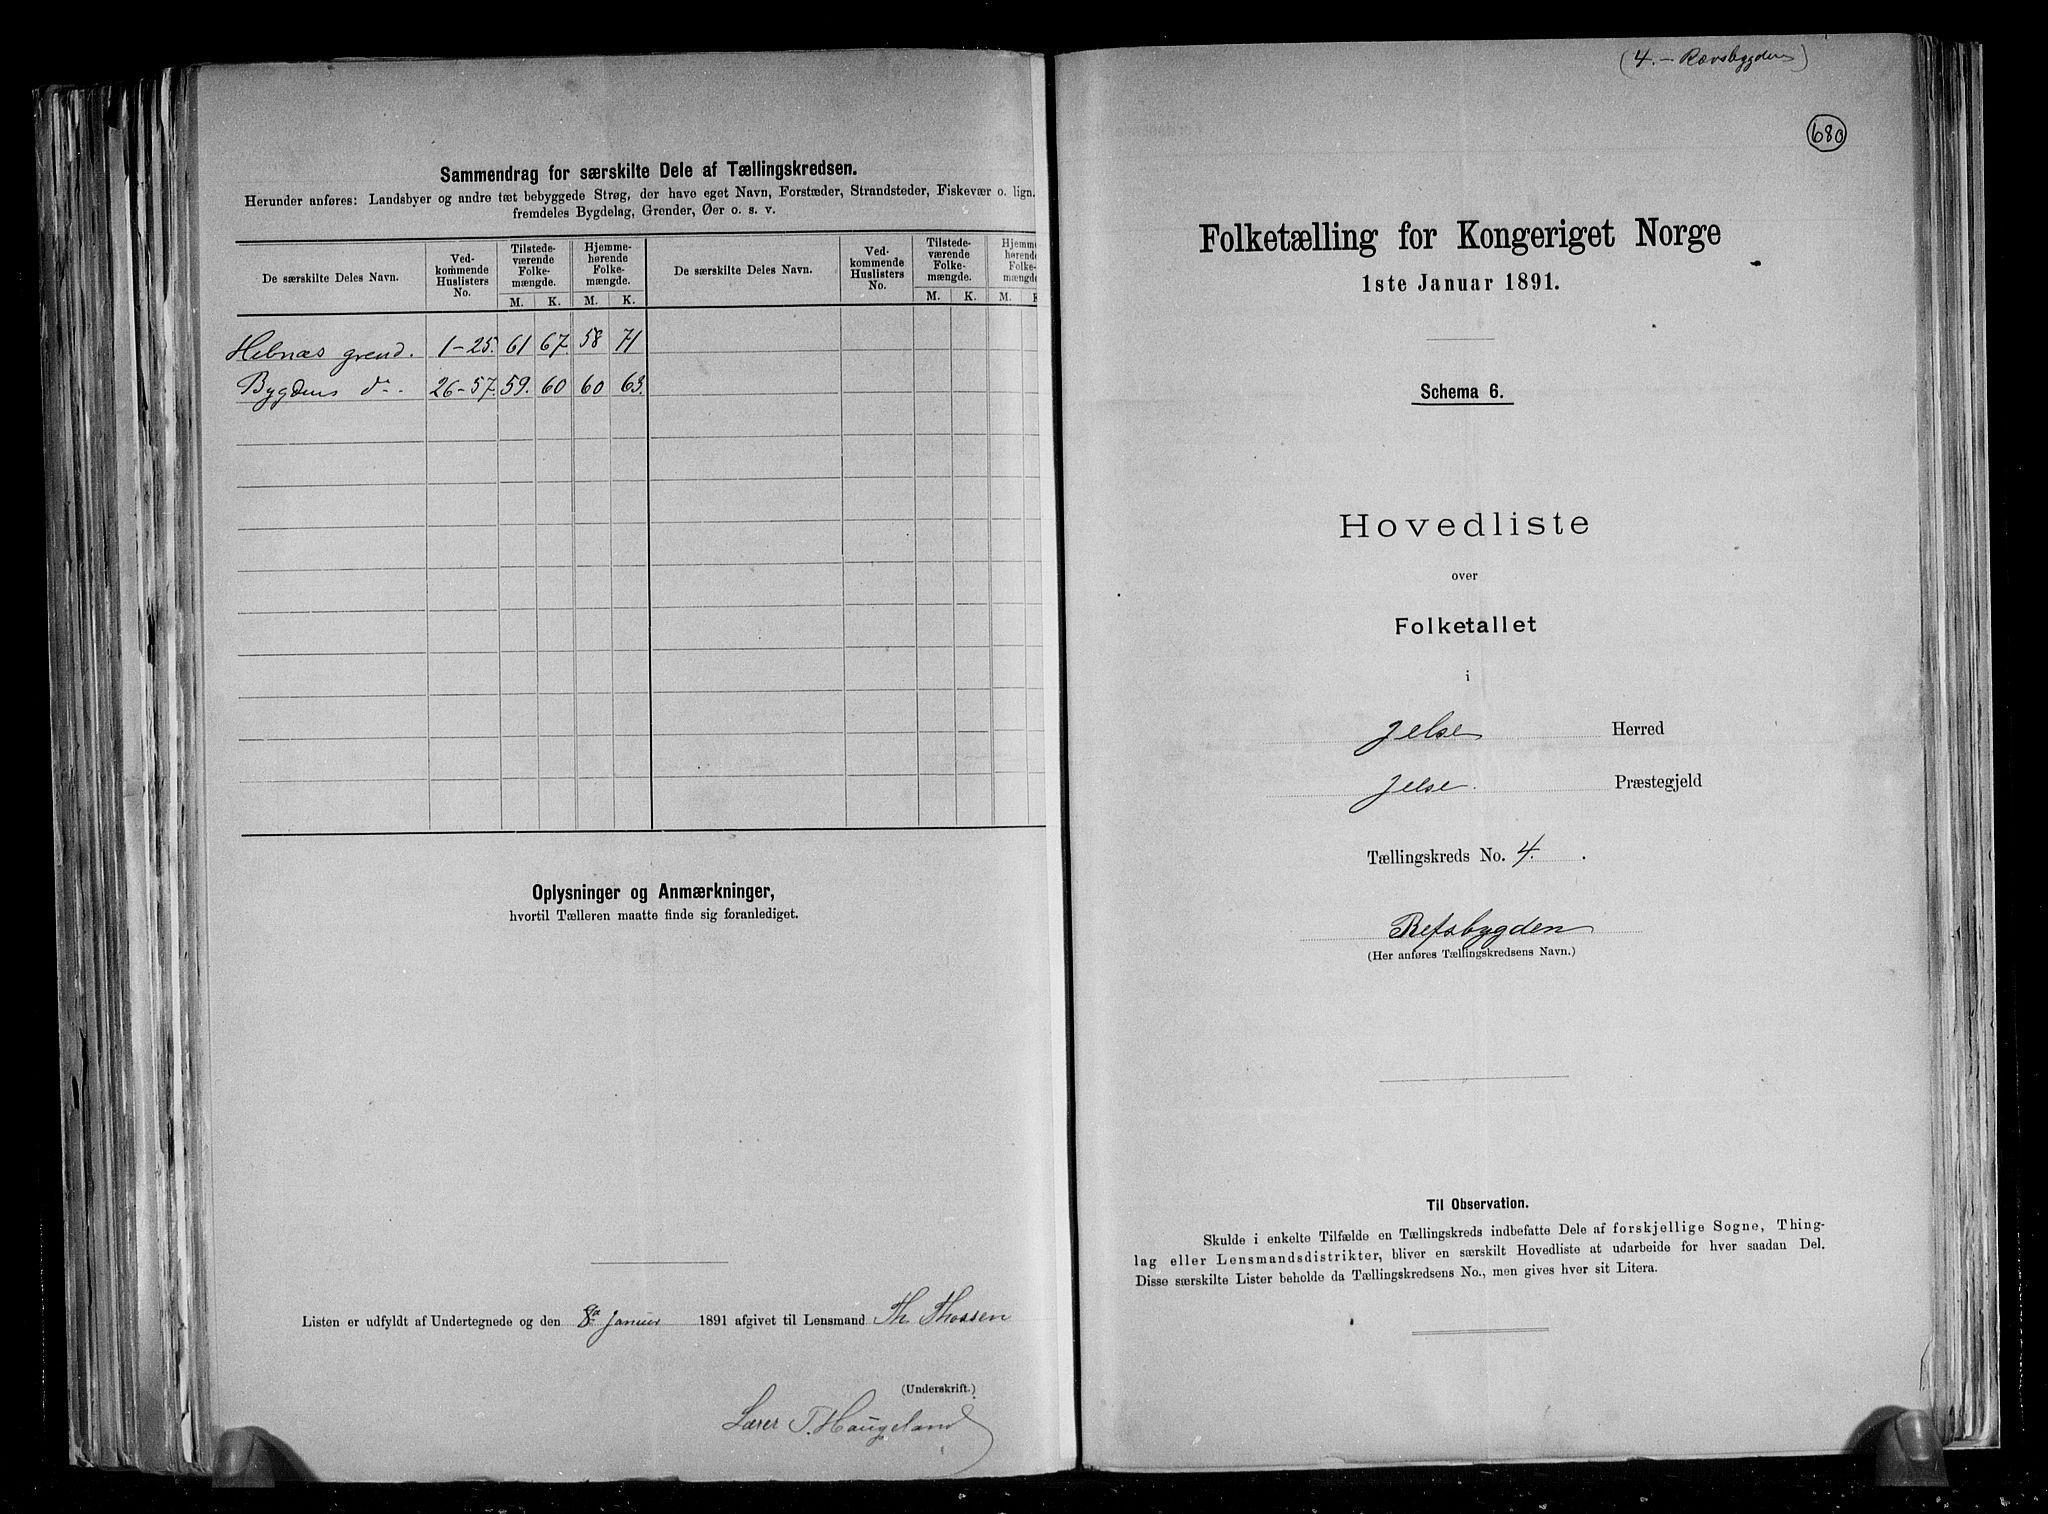 Sammendrag for særskilte Dele af Tællingskredsen.
Herunder anføres: Landsbyer og andre tæt bebyggede Strøg, der have eget Navn, Forstæder, Strandsteder, Fiskevær o. lign.
fremdeles Bygdelag, Grender, Øer o. s. v.
De særskilte Deles Navn. Ved-kommende Huslisters No. Tilstede-værende Folke-mængde. Hjemme-hørende Folke-mængde. De særskilte Deles Navn. Ved-kommende Huslisters No. Tilstede-værende Folke-mængde. Hjemme-hørende Folke-mængde
M. K. M. K. M. K. M. K
Hebnæs grend. 1-25. 61 67. 58 71
Bygdens do. 26-57. 59. 60 60 63.
Oplysninger og Anmærkninger,
hvortil Tælleren maatte finde sig foranlediget.
Listen er udfyldt af Undertegnede og den 8de Januar 1891 afgivet til Lensmand Th. Thossen
(Underskrift.)
Lærer T. Haugeland
(4. - Rævsbygden)
680
Folketælling for Kongeriget Norge
1ste Januar 1891.
Schema 6.
Hovedliste
over
Folketallet
i
Jelse Herred
Jelse. Præstegjeld
Tællingskreds No. 4.
Refsbygden
(Her anføres Tællingskredsens Navn.)
Til Observation.
Skulde i enkelte Tilfælde en Tællingskreds indbefatte Dele af forskjellige Sogne, Thing-
lag eller Lensmandsdistrikter, bliver en særskilt Hovedliste at udarbeide for hver saadan Del.
Disse særskilte Lister beholde da Tællingskredsens No., men gives hver sit Litera.